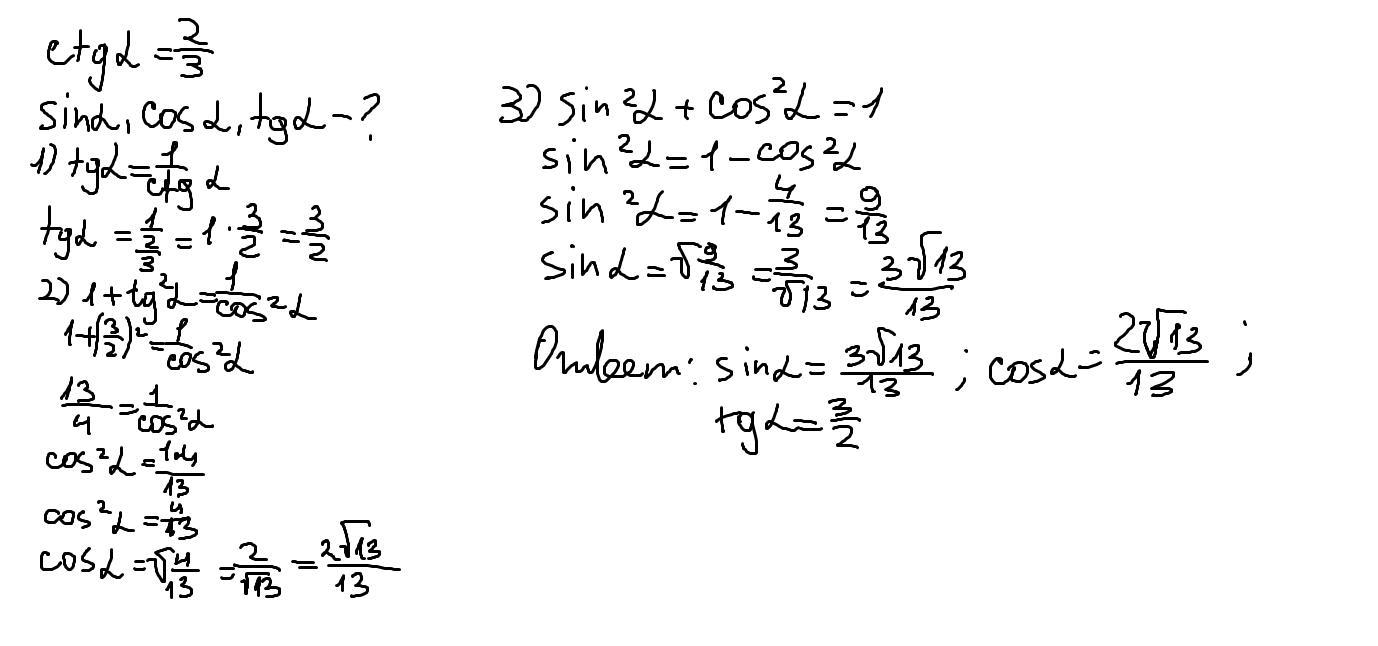 ctgα = 2/3
sinα, cosα, tgα - ?
1) tgα = 1/ctgα
tgα = 1/(2/3) = 1 · 3/2 = 3/2
2) 1 + tg²α = 1/cos²α
1 + (3/2)² = 1/cos²α
13/4 = 1/cos²α
cos²α = 1·4/13
cos²α = 4/13
cosα = √4/13 = 2/√13 = 2√13/13
3) sin²α + cos²α = 1
sin²α = 1 - cos²α
sin²α = 1 - 4/13 = 9/13
sinα = √9/13 = 3/√13 = 3√13/13
Ответ: sinα = 3√13/13 ; cosα = 2√13/13 ;
tgα = 3/2